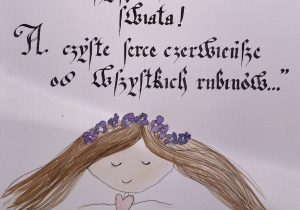 świata!
A czyste serce czerwieńsze
od wszystkich rubinów..."